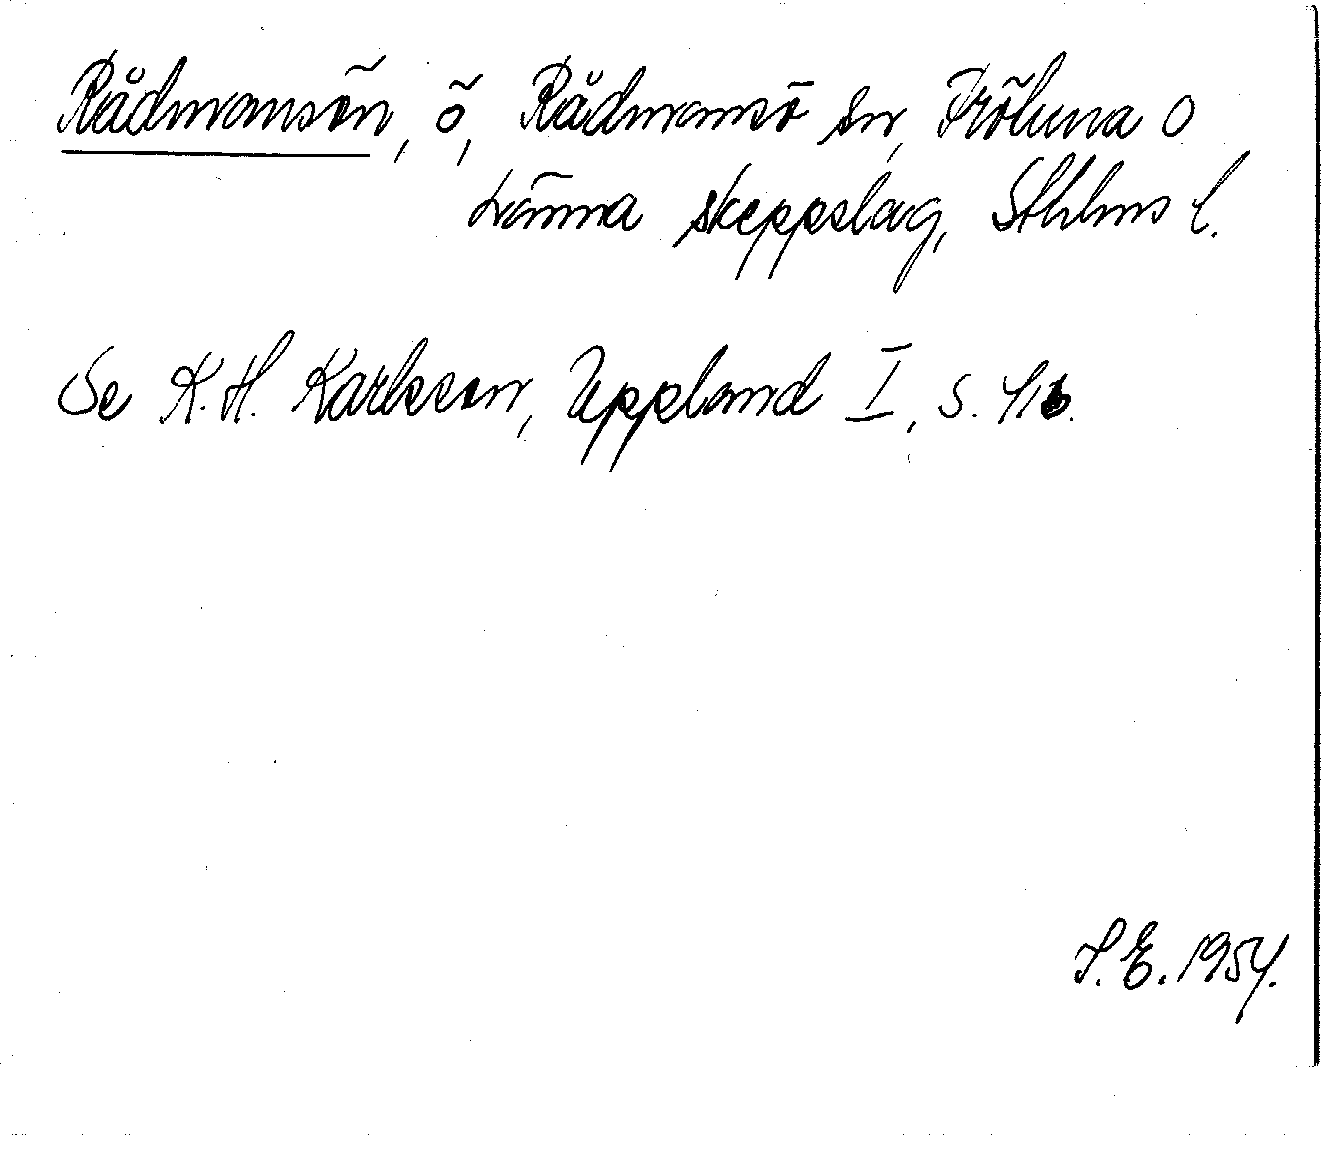 Rådmansön, ö, Rådmansö sn, Frötuna o
Länna skeppslag, Sthlms l.
Se K. H. Karlsson, Uppland I, s.
S. E. 1954.